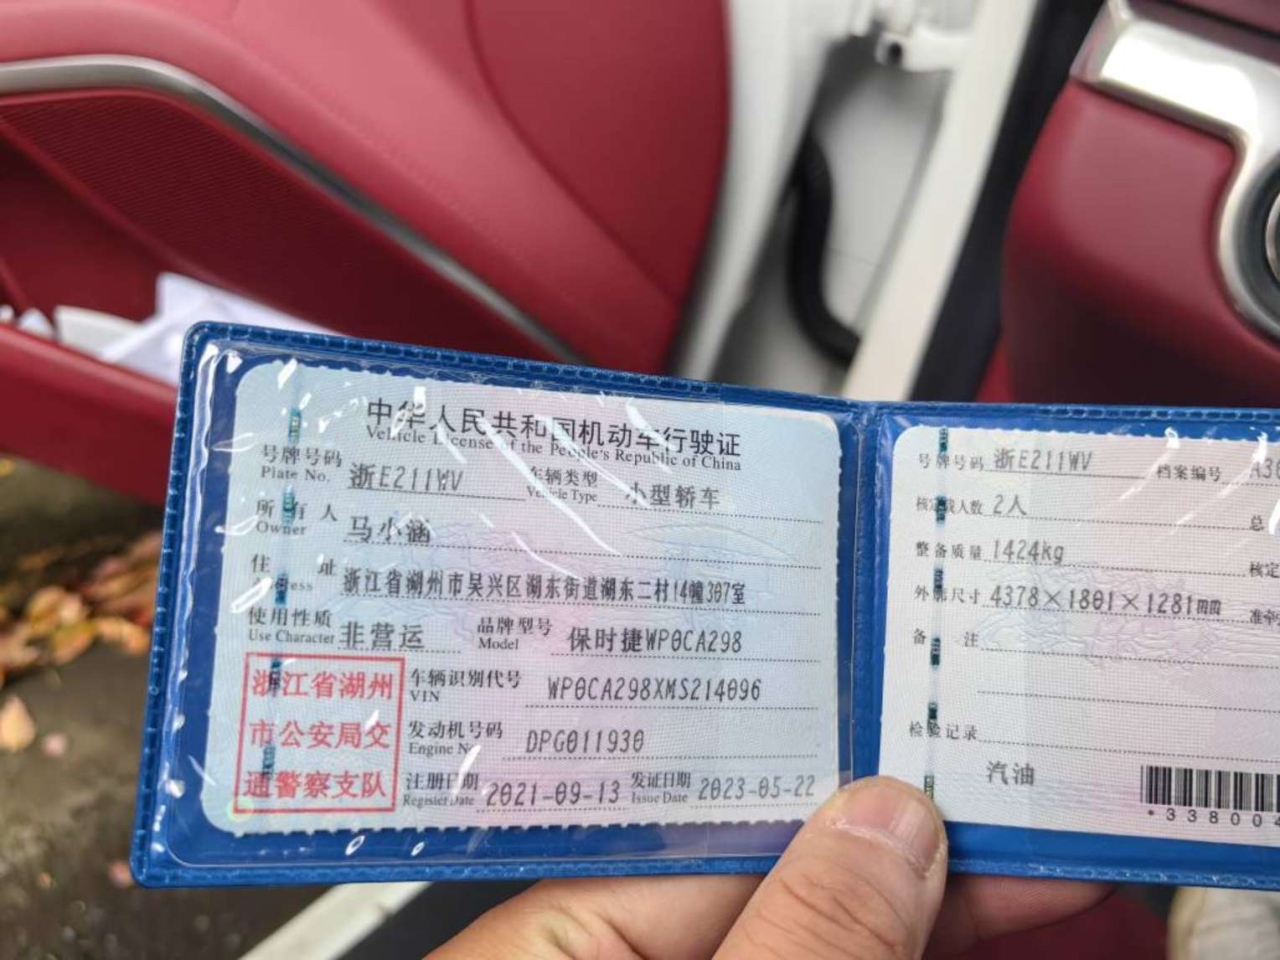 中华人民共和国机动车行驶证
Vehicle License of the People's Republic of China
号牌号码 浙E211WV 车辆类型 小型轿车
Plate No. Vehicle Type
所有人 马小涵
Owner
住址 浙江省湖州市吴兴区湖东街道湖东二村14幢307室
使用性质 非营运 品牌型号 保时捷WP0CA298
Use Character Model
浙江省湖州
市公安局交
通警察支队
车辆识别代号 WP0CA298XMS214096
VIN
发动机号码 DPG011930
Engine No.
注册日期 2021-09-13 发证日期 2023-05-22
Register Date Issue Date
号牌号码 浙E211WV 档案编号
核定载人数 2人 总
整备质量 1424kg 核定
外廓尺寸 4378×1801×1281mm 准牵
备注
检验记录
汽油
*338004